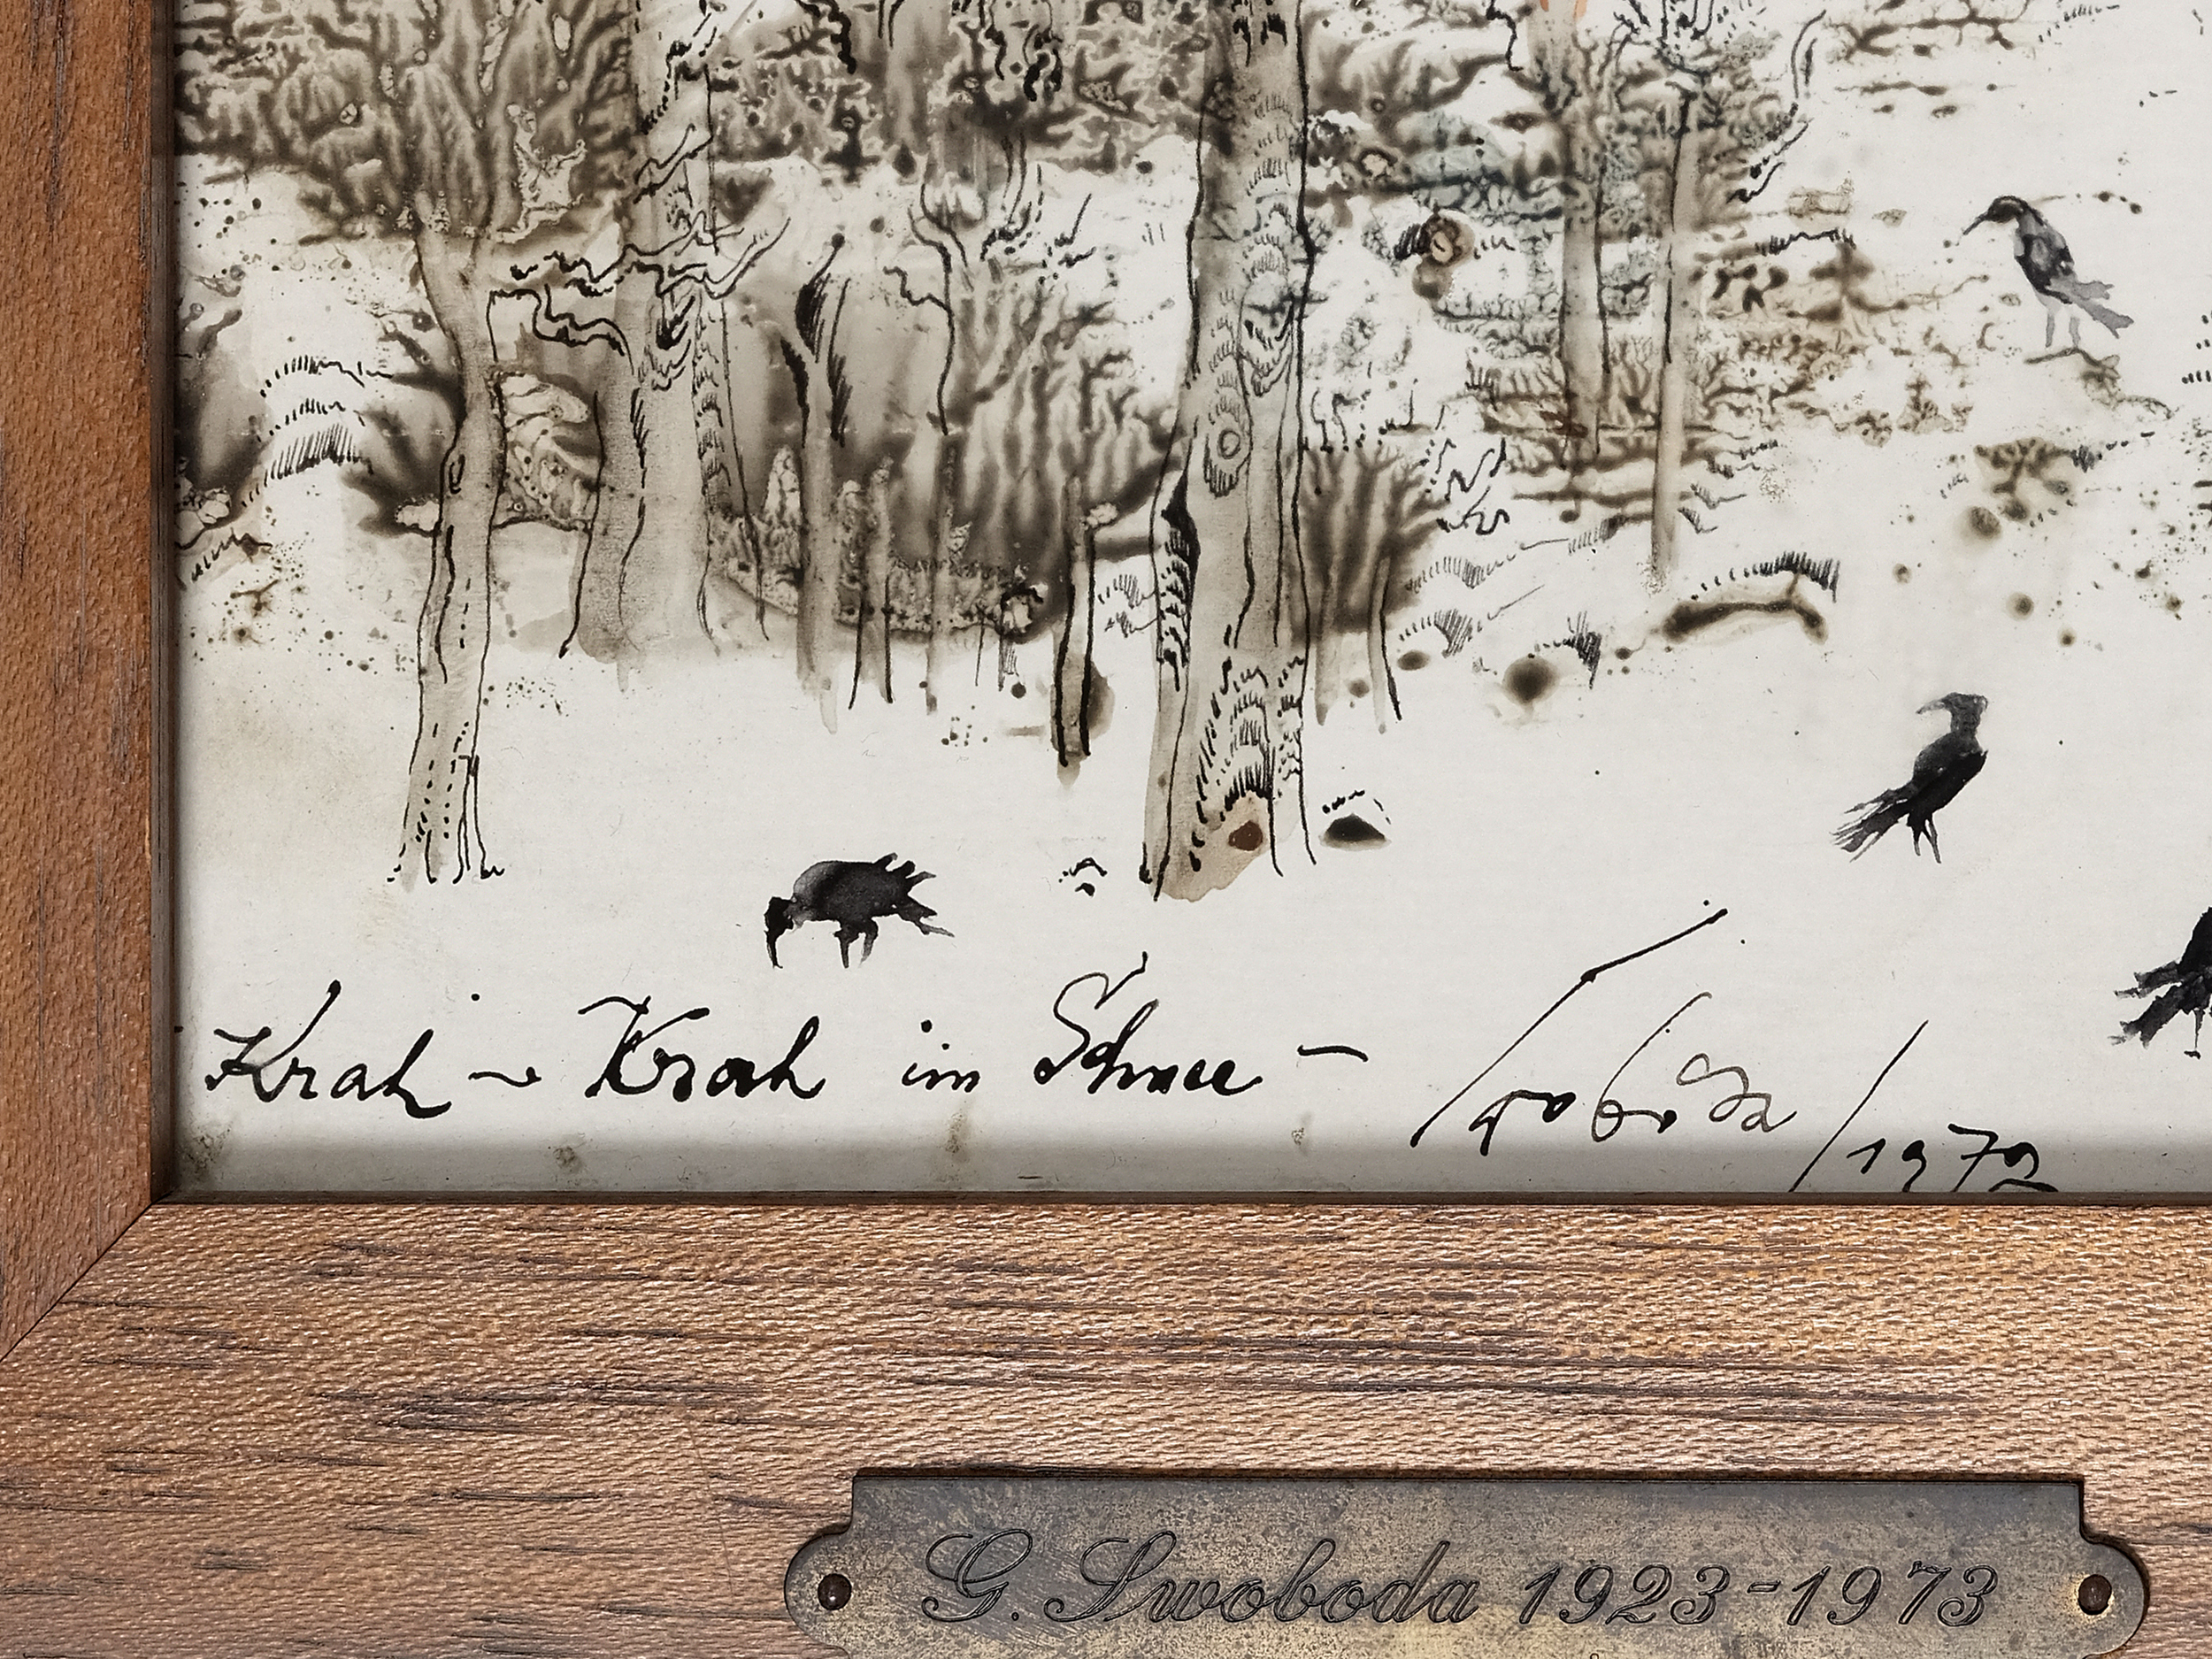 Krah - Krah im Schnee - Swoboda /1972
G. Swoboda 1923-1973